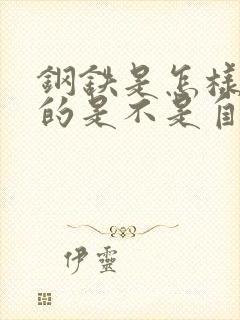 鋼鉄是怎樣
的是不是自
伊靈